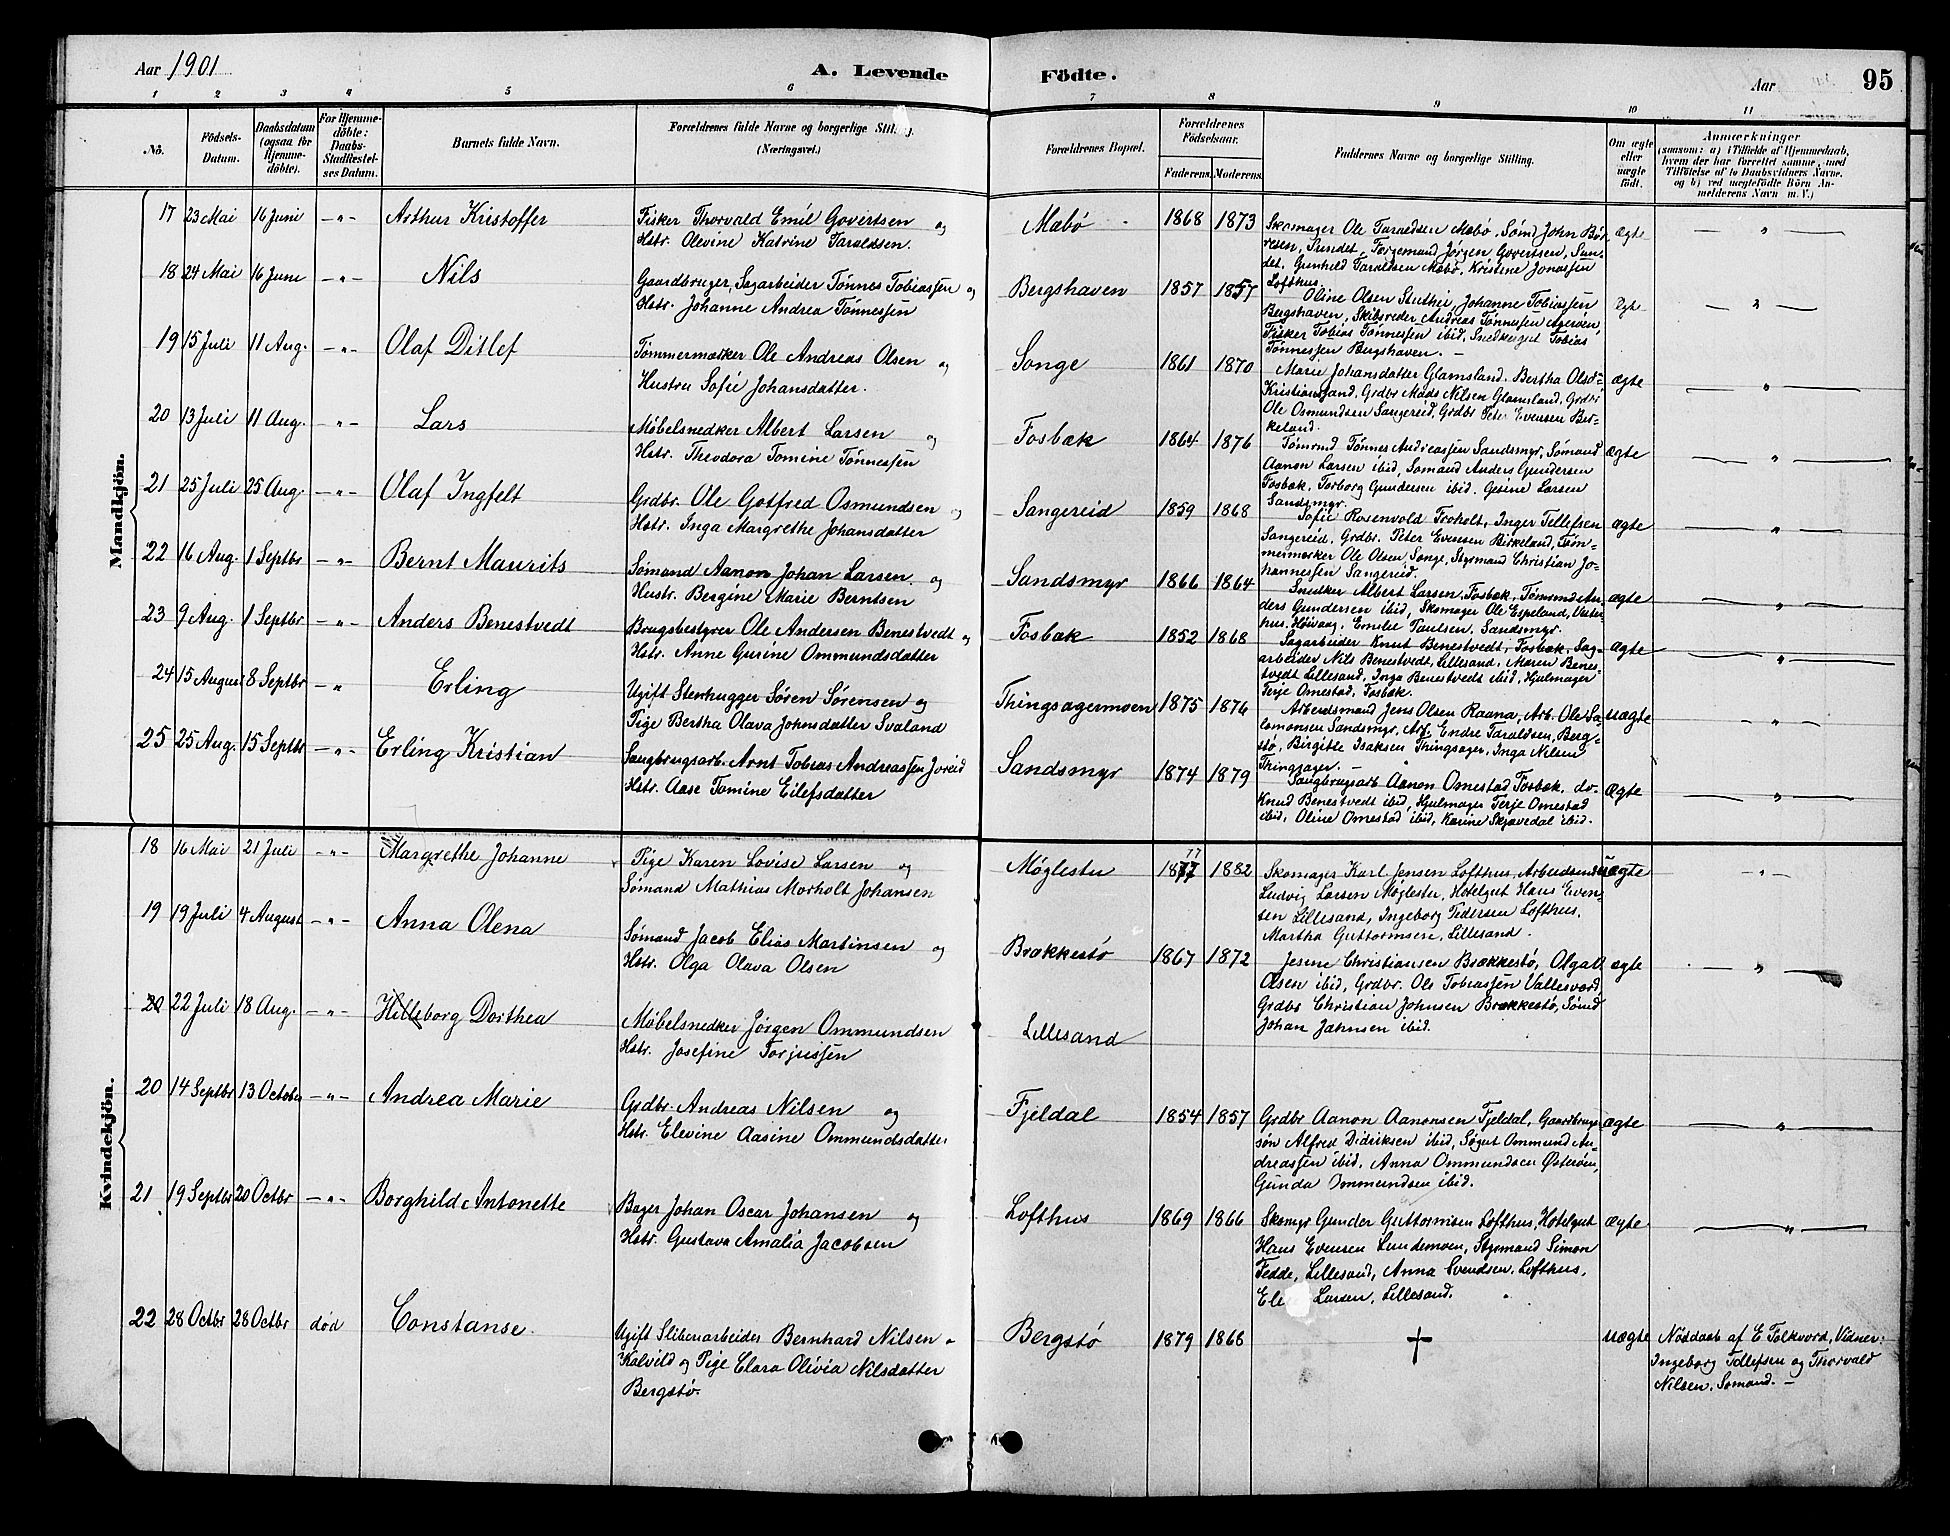 Aar 1901
A. Levende
Födte.
Aar
95
1 2 3 4 5 6 7 8 9 10 11
No.
Födsels-
Datum.
Daabsdatum
(ogsaa for
Hjemme-
döbte).
For Hjemme-
döbte:
Daabs-
Stadfæstel-
ses Datum.
Barnets fulde Navn.
Forældrenes fulde Navne og borgerlige Stilling.
(Næringsvei.)
Forældrenes Bopæl.
Forældrenes
Födselsaar.
Faderens.
Moderens.
Faddernes Navne og borgerlige Stilling.
Om ægte
eller
uægte
født.
Anmærkninger
(saasom: a) i Tilfælde af Hjemmedaab,
hvem der har forrettet samme, med
Tilföielse af to Daabsvidners Navne,
og b) ved uægtefödte Börn An-
melderens Navn m. V.)
Mandkjön.
17 23 Mai 16 Juni -"- Arthur Kristoffer
Fisker Thorvald Emil Govertsen og
Hstr. Olevine Katrine Taraldsen.
Mæbø 1868 1873
Skomager Ole Taraldsen Mæbø, Sømd John Bør
resen, Sundet, Forgemand Jørgen Govertsen, Sun-
det, Gunhild Taraldsen Mæbø, Kristine Jonassen
Lofthus.
ægte
18 24 Mai 16 Juni -"- Nils
Gaardbruger, Sagarbeider Tønnes Tobiassen og
Hstr. Johanne Andrea Tønnessen
Bergshaven 1857 1857
Oline Olsen Stuthei, Johanne Tobiassen
Bergshaven, Skibsreder Andreas Tønnesen Ageröen,
Fisker Tobias Tønnessen ibid, Snedkergut Tobias
Tønnessen Bergshaven.
Ægte
19 15 Juli 11 Aug. -"- Olaf Ditlef
Tømmermærker Ole Andreas Olsen og
Hustru Sofie Johansdatter.
Songe 1861 1870
Marie Johansdatter Glamsland. Bertha Olsen
Kristiansand, Grdbr Mads Nilsen Glamsland, Grdbr
Ole Osmundsen Sangereid, Grdbr Peter Evensen Bir-
keland.
ægte
20 13 Juli 11 Aug. -"- Lars
Møbelsnedker Albert Larsen og
Hstr. Theodora Tomine Tønnessen
Fosbæk 1864 1876
Tømrmd Tønnes Andreassen Sandsmyr, Sømand
Aanon Larsen ibid, Sømand Anders Gundersen
Fosbæk, Torborg Gundersen ibid. Gesine Larsen
Sandsmyr.
ægte
21 25 Juli 25 Aug. -"- Olaf Ingfelt
Grdbr. Ole Gotfred Osmundsen og
Hstr. Inga Margrethe Johansdatter
Sangereid 1859 1868
Sofie Rosenvold Froholt, Inger Tellefsen
Sangereid, Grdbr. Peter Evensen Birkeland, Tøm-
mermærker Ole Olsen, Songe, Styrmand Christian Jo-
hannessen Sangereid.
ægte
22 16 Aug. 1 Septbr -"- Bernt Maurits
Sømand Aanon Johan Larsen og
Hustr. Bergine Marie Berntsen
Sandsmyr 1866 1864
Snedker Albert Larsen, Fosbæk, Tømrmd An-
ders Gundersen ibid, Skomager Ole Espeland, Vester-
hus. Höivaag, Emelie Paulsen, Sandsmyr.
ægte
23 9 Aug. 1 Septbr -"- Anders Benestvedt
Brugsbestyrer Ole Andersen Benestvedt og
Hstr. Anne Gurine Ommundsdatter
Fosbæk 1852 1868
Sagarbeider Knut Benestvedt, Fosbæk, Sag-
arbeider Nils Benestvedt, Lillesand, Maren Benes-
tvedt Lillesand, Inga Benestvedt ibid, Hjulmager
Terje Omestad, Fosbæk.
Ægte
24 15 August 8 Septbr -" Erling
Ugift Stenhugger Søren Sørensen og
Pige Bertha Olava Johnsdatter Svaland
Thingsagermoen 1875 1876
Arbeidsmand Jens Olsen Raana, Arb. Ole Sa-
lomonsen Sandsmyr, Arb. Endre Taraldsen, Berg-
stø, Birgitte Isaksen Thingsager, Inga Nilsen
Thingsager.
uægte
25 25 Aug. 15 Septbr -"- Erling Kristian
Saugbrugsarb. Arnt Tobias Andreassen Joreid
Hstr. Aase Tomine Eilefsdatter
Sandsmyr 1874 1879
Saugbrugsarb Aanon Omestad Fosbæk, do-
Knud Benestvedt ibid, Hjulmager Terje Omestad
ibid, Oline Omestad ibid, Karine Skjævedal ibid.
Ægte
Kvindekjön.
18 16 Mai 21 Juli -"- Margrethe Johanne
Pige Karen Lovise Larsen og
Sømand Mathias Morholt Johansen
Møglestu 1877 1882
Skomager Karl Jensen Lofthus, Arbeidsmd
Ludvig Larsen Møglestu, Hotelgut Hans Even-
sen Lillesand, Ingeborg Pedersen Lofthus.
Martha Guttormsen, Lillesand.
uægte
19 19 Juli 4 August -"- Anna Olena
Sømand Jacob Elias Martinsen og
Hstr. Olga Olava Olsen
Brækkestø 1867 1872
Jesine Christiansen Brækkestø, Olga
Olsen ibid, Grdbr. Ole Tobiassen Vallesverd,
Grdbr Christian Johnsen Brækkestø, Sømd
Johan Jahnsen ibid.
ægte
20 22 Juli 18 Aug. -"- Hilleborg Dorthea
Møbelsnedker Jørgen Ommundsen
Hstr. Josefine Torjussen
Lillesand
20 14 Septbr 13 October -"- Andrea Marie
Grdbr. Andreas Nilsen og
Hstr. Elevine Aasine Ommundsdatter
Fjeldal 1854 1857
Grdbr Aanon Aanonsen Fjeldal, Gaardbruger
søn Alfred Didriksen ibid, Søgut Ommund An-
dreassen ibid. Anna Ommundsen Østerøen,
Gunda Ommundsen ibid.
ægte
21 19 Septbr 20 Octbr -"- Borghild Antonette
Bager Johan Oscar Johansen og
Hstr. Gustava Amalia Jacobsen
Lofthus 1869 1866
Skomgr Gunder Guttormsen Lofthus, Hotelgut
Hans Evensen Lundemoen, Styrmand Simon
Fedde, Lillesand, Anna Svendsen, Lofthus,
Larsen, Lillesand.
ægte
22 28 Octbr 28 Octbr død Constanse
Ugift Sliberiarbeider Bernhard Nilsen
Kalvild og Pige Clara Olivia Nilsdatter
Bergstø.
Bergstø 1879 1868
†
uægte
Nøddaab af E Folkvord, Vidner:
Ingeborg Tellefsen og Thorvald
Nilsen, Sømand.